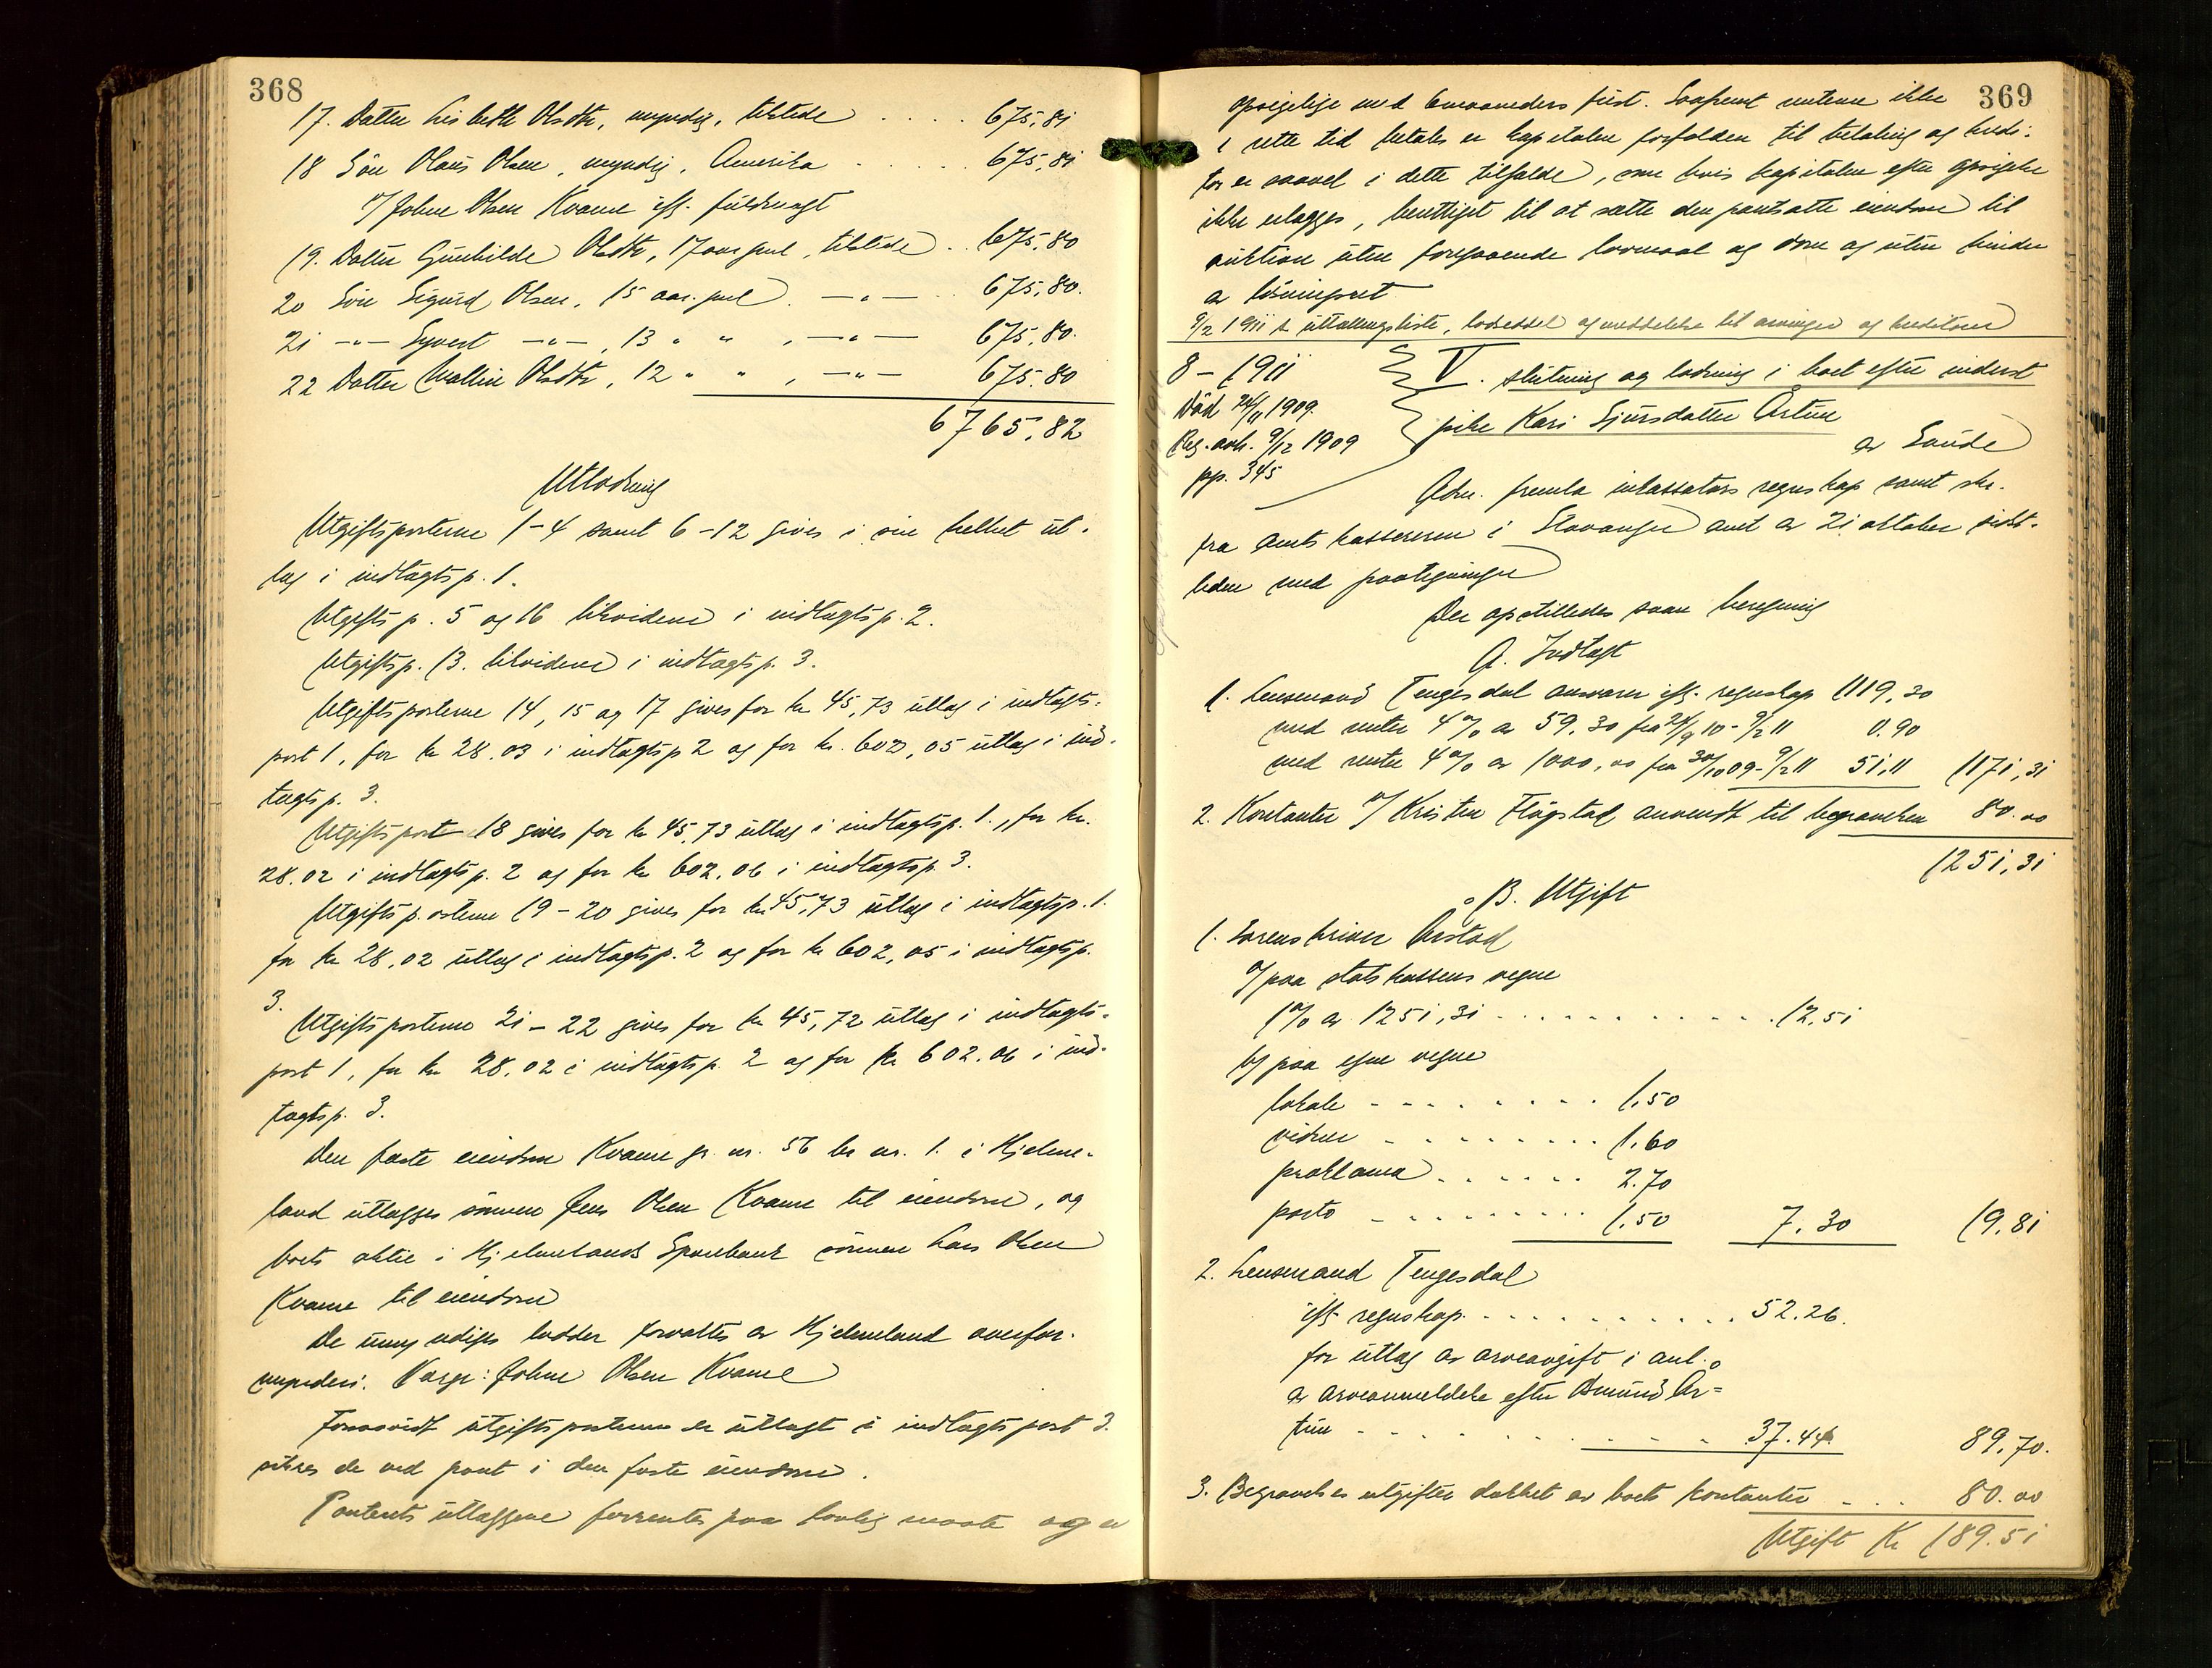 368
17. Datter Lisbeth Olsdtr, myndig, tilstede . . . . 675,81
18 Søn Olaus Olsen, myndig, Amerika . . . . 675,81
v/ Johne Olsen Kvame iflg. fuldmagt
19. Datter Gunhilde Olsdtr, 17 aar gml, tilstede . . 675,80
20 Søn Sigurd Olsen, 15 aar. gml . —"— 675,80.
21 —"— Syvert —"—, 13 " " , —"— 675,80.
22 Datter Malline Olsdtr, 12 " " , —"— 675.80
6765,82
Utlodning
Utgiftsposterne 1-4 samt 6-12 gives i sin helhet ut-
læg i indtægtsp. 1.
Utgiftsp. 5 og 16 likvideres i indtægtsp. 2.
Utgiftsp. 13. likvideres i indtægtsp. 3.
Utgiftsposterne 14, 15 og 17 gives for kr 45,73 utlæg i indtægts-
post 1, for kr 28.03 i indtægtsp 2 og for kr. 602,05 utlæg i ind-
tægtsp. 3.
Utgiftspost 18 gives for kr 45,73 utlæg i indtægtsp. 1., for kr.
28.02 i indtægtsp. 2 og for kr 602.06 i indtægtsp 3.
Utgiftsposterne 19-20 gives for kr 45,73 utlæg i indtægtsp. 1.
for kr 28,02 utlæg i indtægtsp. 2 og for kr 602,05 i indtægtsp.
3.
Utgiftsposterne 21-22 gives for kr 45,72 utlæg i indtægts-
post 1, for kr 28.02 i indtægtsp. 2 og for kr 602.06 i ind-
tægtsp. 3.
Den faste eiendom Kvame gr. nr. 56 br nr. 1. i Hjelme-
land utlægges sønnen Jens Olsen Kvame til eiendom, og
boets aktie i Hjelmelands Sparebank sønnen Lars Olsen
Kvame til eiendom
De umyndiges lodder forvaltes av Hjelmeland overfor-
mynderi. Værge: Johne Olsen Kvame
Forsaavidt utgiftsposterne er utlagt i indtægtspost 3.
sikres de ved pant i den faste eiendom.
Panterets utlæggene forrentes paa lovlig maate og er
369
opsigelige med 6 maaneders frist. Saafremt renterne ikke
i rette tid betales er kapitalen forfalden til betaling og kredi-
tor er saavel i dette tilfælde, som hvis kapitalen efter opsigelse
ikke erlægges, berettiget til at sætte den pantsatte eiendom til
auktion uten foregaaende lovmaal og dom og uten hinder
av løsningsret
9/2 1911 s. utlodningsliste, lodseddel og meddelelse til arvinger og kreditorer
8 - 1911
Død 24/11 1909.
Reg. avh. 9/12 1909
pp. 345
V. slutning og lodning i boet efter inderst
pike Kari Sjursdatter Årtun
av Sande
Adm. fremla inkassators regnskap samt skr.
fra amtskassereren i Stavanger amt av 21 oktober sidst-
leden med paategninger
Der opstilledes saan beregning
A. Indtægt
1. Lensmand Tengesdal ansvarer iflg. regnskap 1119,30
med renter 4% av 59.30 fra 24/9 10 - 9/2 11 0.90
med renter 4% av 1000,00 fra 30/10 09 - 9/2 11 51,11 1171,31
2. Kontanter v/ Kristen Fløgstad anvendt til begravelsen 80.00
1251,31
B. Utgift
1. Sorenskriver Årstad
a/ paa statskassens vegne
1% av 1251,31 . . . . . . . . 12,51
b/ paa egne vegne
lokale . . . . . . . 1,50
vidner . . . . . . . 1.60
proklama . . . . . . 2.70
porto . . . . . . . 1,50 7.30 19,81
2. Lensmand Tengesdal
iflg. regnskap . . . . . . . . 52.26.
for utlæg av arveavgift i anl.
av arveanmeldelse efter Åmund År-
tun . . . . . . . . 37.44 89,70.
3. Begravelsesutgifter dækket av boets kontanter . . . 80.00
Utgift Kr 189.51